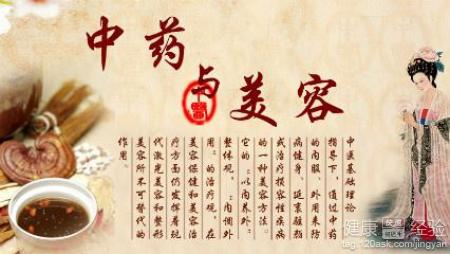 中药
与
美容
中醫
中医基础理论
指导下，通过中药
的内服、外用来防
病健身、延衰驻颜
或治疗损容性疾病
的一种美容方法。
它的：以内养外：
整体观，：内调外
用：的治疗观，在
美容保健和美容治
疗方面仍发挥着现
代激光美容和整形
美容所不可替代的
作用。
健康 经验
tag.120ask.com/jingyan